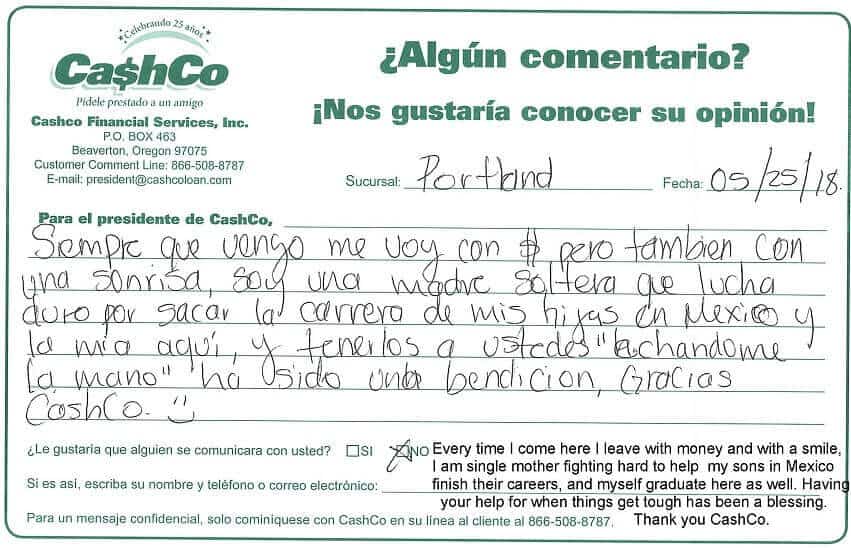 Celebrando 25 años
Ca$hCo
Pídele prestado a un amigo
Cashco Financial Services, Inc.
P.O. BOX 463
Beaverton, Oregon 97075
Customer Comment Line: 866-508-8787
E-mail: president@cashcoloan.com
¿Algún comentario?
¡Nos gustaría conocer su opinión!
Sucursal: Portland Fecha: 05/25/18.
Para el presidente de CashCo,
Siempre que vengo me voy con $ pero tambien con
una sonrisa, soy una madre soltera que lucha
duro por sacar la carrera de mis hijas en Mexico y
la mia aquí, y tenerlos a ustedes "echandome
la mano" ha sido una bendicion, Gracias
CashCo. :)
¿Le gustaría que alguien se comunicara con usted? SI NO
Si es así, escriba su nombre y teléfono o correo electrónico:
Every time I come here I leave with money and with a smile,
I am single mother fighting hard to help my sons in Mexico
finish their careers, and myself graduate here as well. Having
your help for when things get tough has been a blessing.
Thank you CashCo.
Para un mensaje confidencial, solo cominíquese con CashCo en su línea al cliente al 866-508-8787.